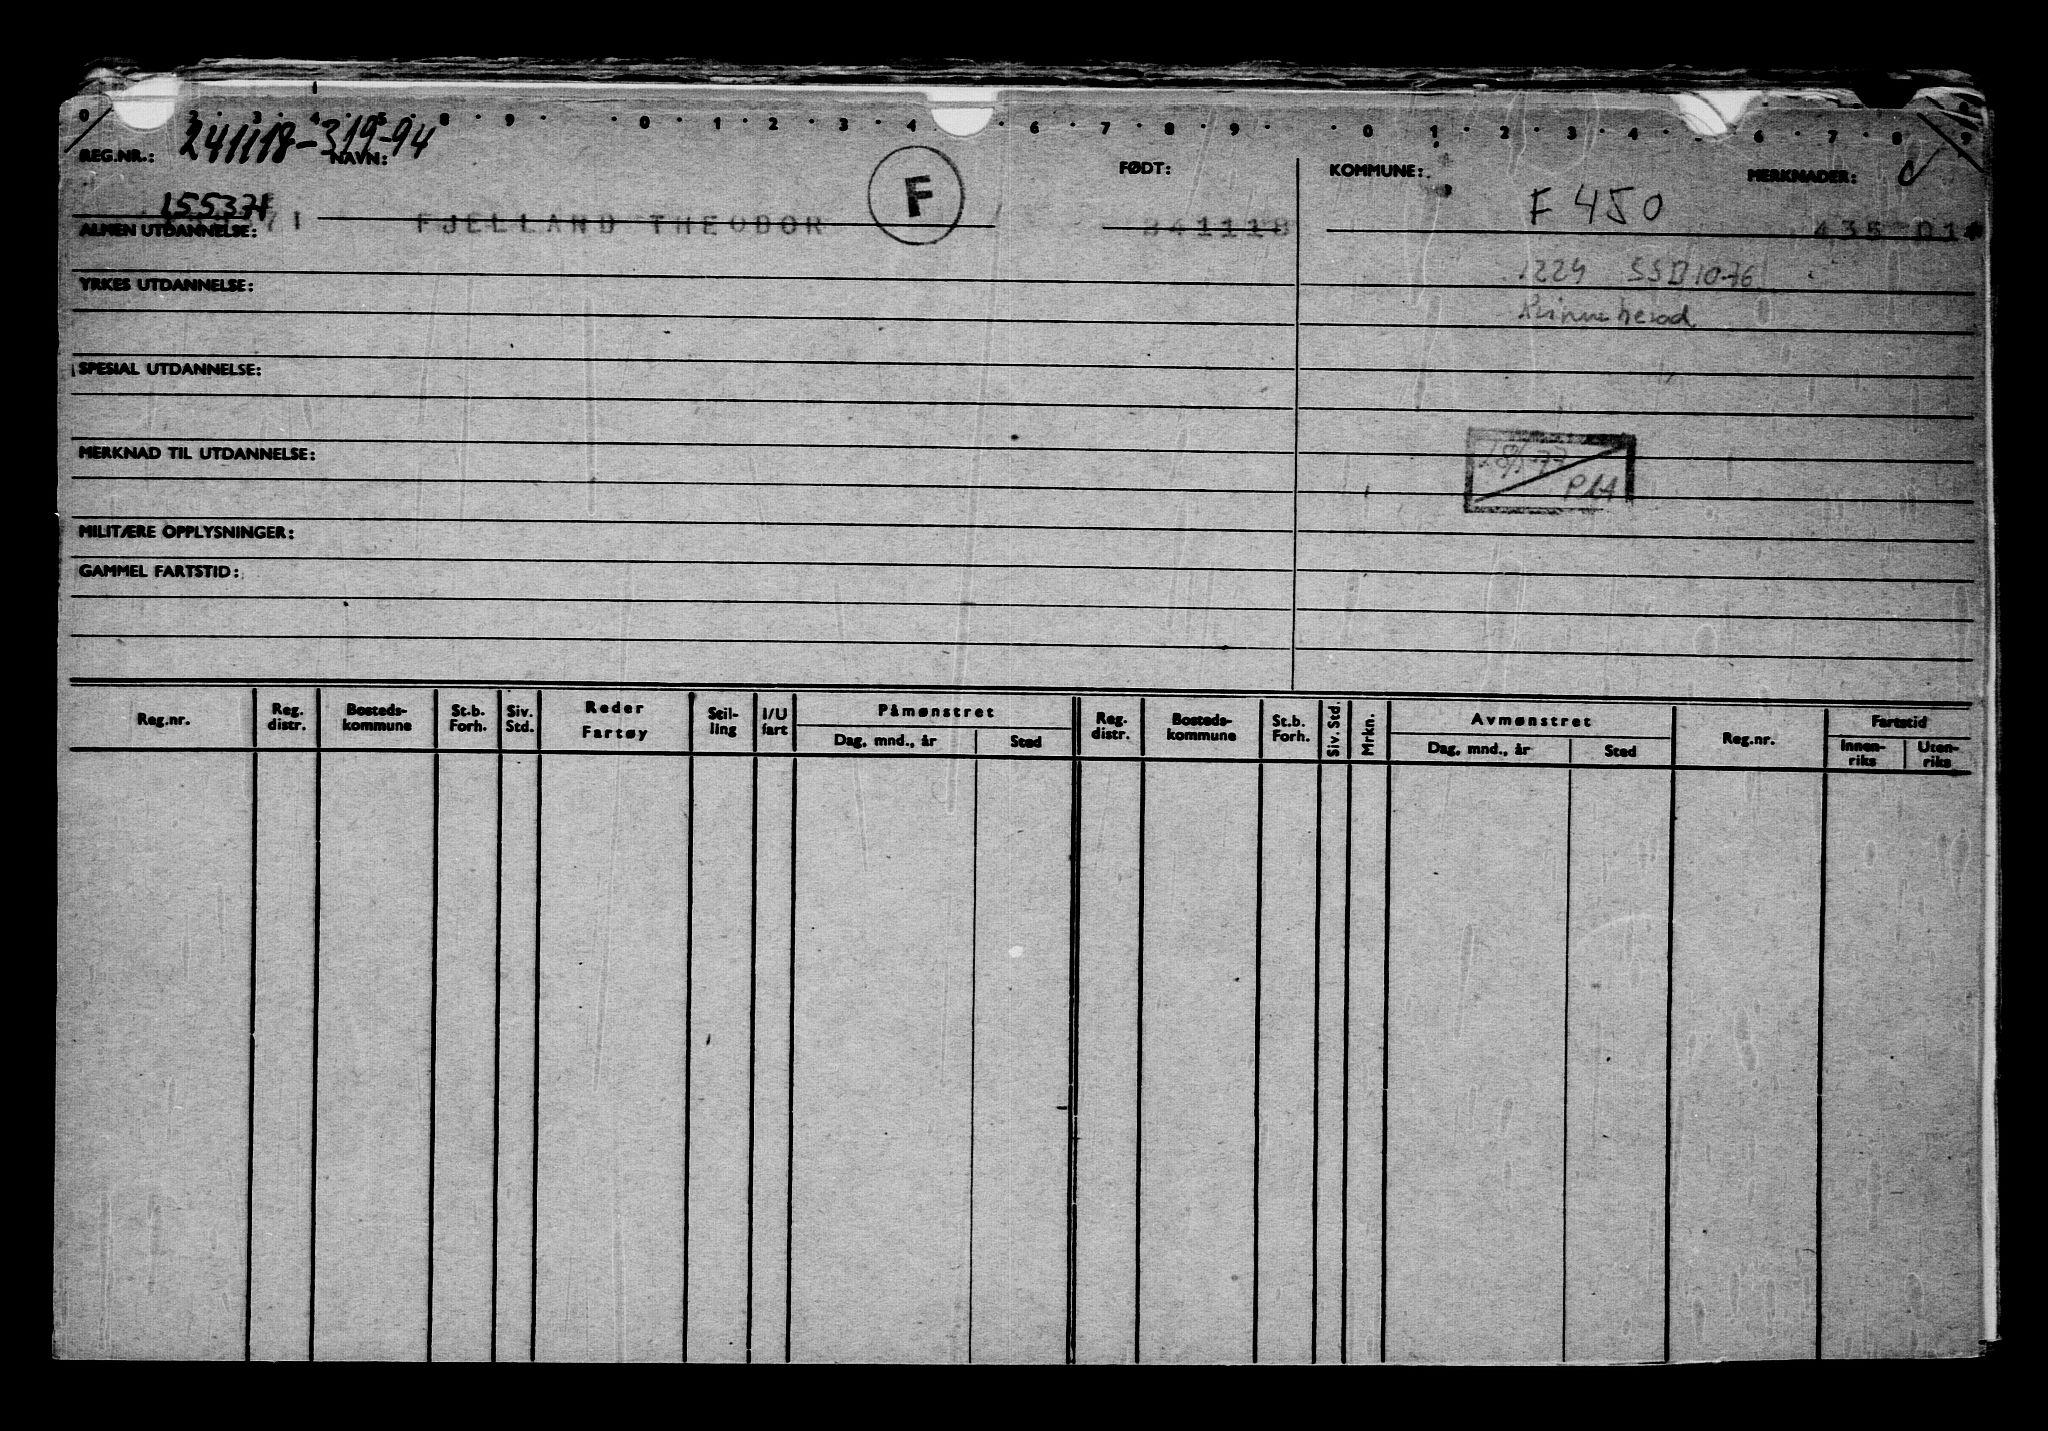 0 2 3 4 5 8 9 0 1 2 3 4 6 7 8 9 0 1 2 3 4 6 7 8 9
REG.NR.: 241118-319-94 NAVN: FØDT: KOMMUNE: MERKNADER:
F
F 450
155371
71 FJELLAND THEODOR 241118 435 01
ALMEN UTDANNELSE:
1224 SSB 10-76
YRKES UTDANNELSE:
Kvinnherad
SPESIAL UTDANNELSE:
MERKNAD TIL UTDANNELSE:
MILITÆRE OPPLYSNINGER:
GAMMEL FARTSTID:
Reg.nr. Reg. distr. Bosteds- kommune St.b. Forh. Siv. Std. Reder Fartøy Stil- ling I/U fart Påmønstret Dag, mnd., år Sted Reg. distr. Bosteds- kommune St.b. Forh. Siv. Std. Mrkn. Avmønstret Dag, mnd., år Sted Reg.nr. Fartstid Innen- riks Uten- riks